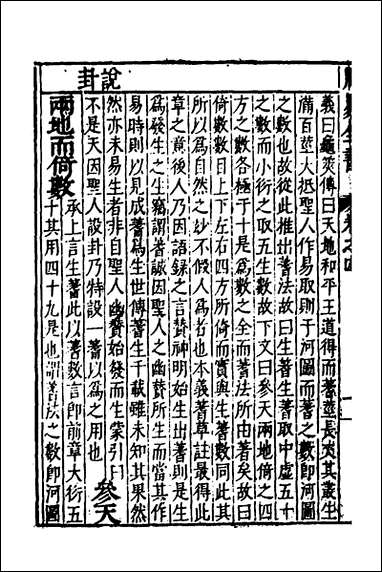 說卦
義曰龜筴傳曰天地和平王道得而蓍莖長丈其叢生
滿百莖大抵聖人作易取則于河圖而蓍之數即河圖
之數也故從此推出蓍法故曰生蓍生蓍取中虛五十
之數而小衍之取五生數故下文曰參天兩地倚之四
方之數各極于十是爲數之全而蓍法所由蓍矣故曰
倚數數目上下左右四方所倚而實與生蓍數同此其
所以爲自然之妙不假人爲者也本義蓍草註最得此
章之意後人乃因語録之言賛神明始生出蓍則是生
爲發生之生竊謂蓍誠因聖人之幽賛所生而當其作
易時則以見成蓍爲生世傳蓍生千載雖未知其果然
然亦未易生者非自聖人幽賛始發而生蒙引曰
不是天因聖人設卦乃特設一蓍以爲之用也 參天
兩地而倚數
承上言生蓍此以蓍數言即前章大衍五
十其用四十九是也謂蓍法之數即河圖